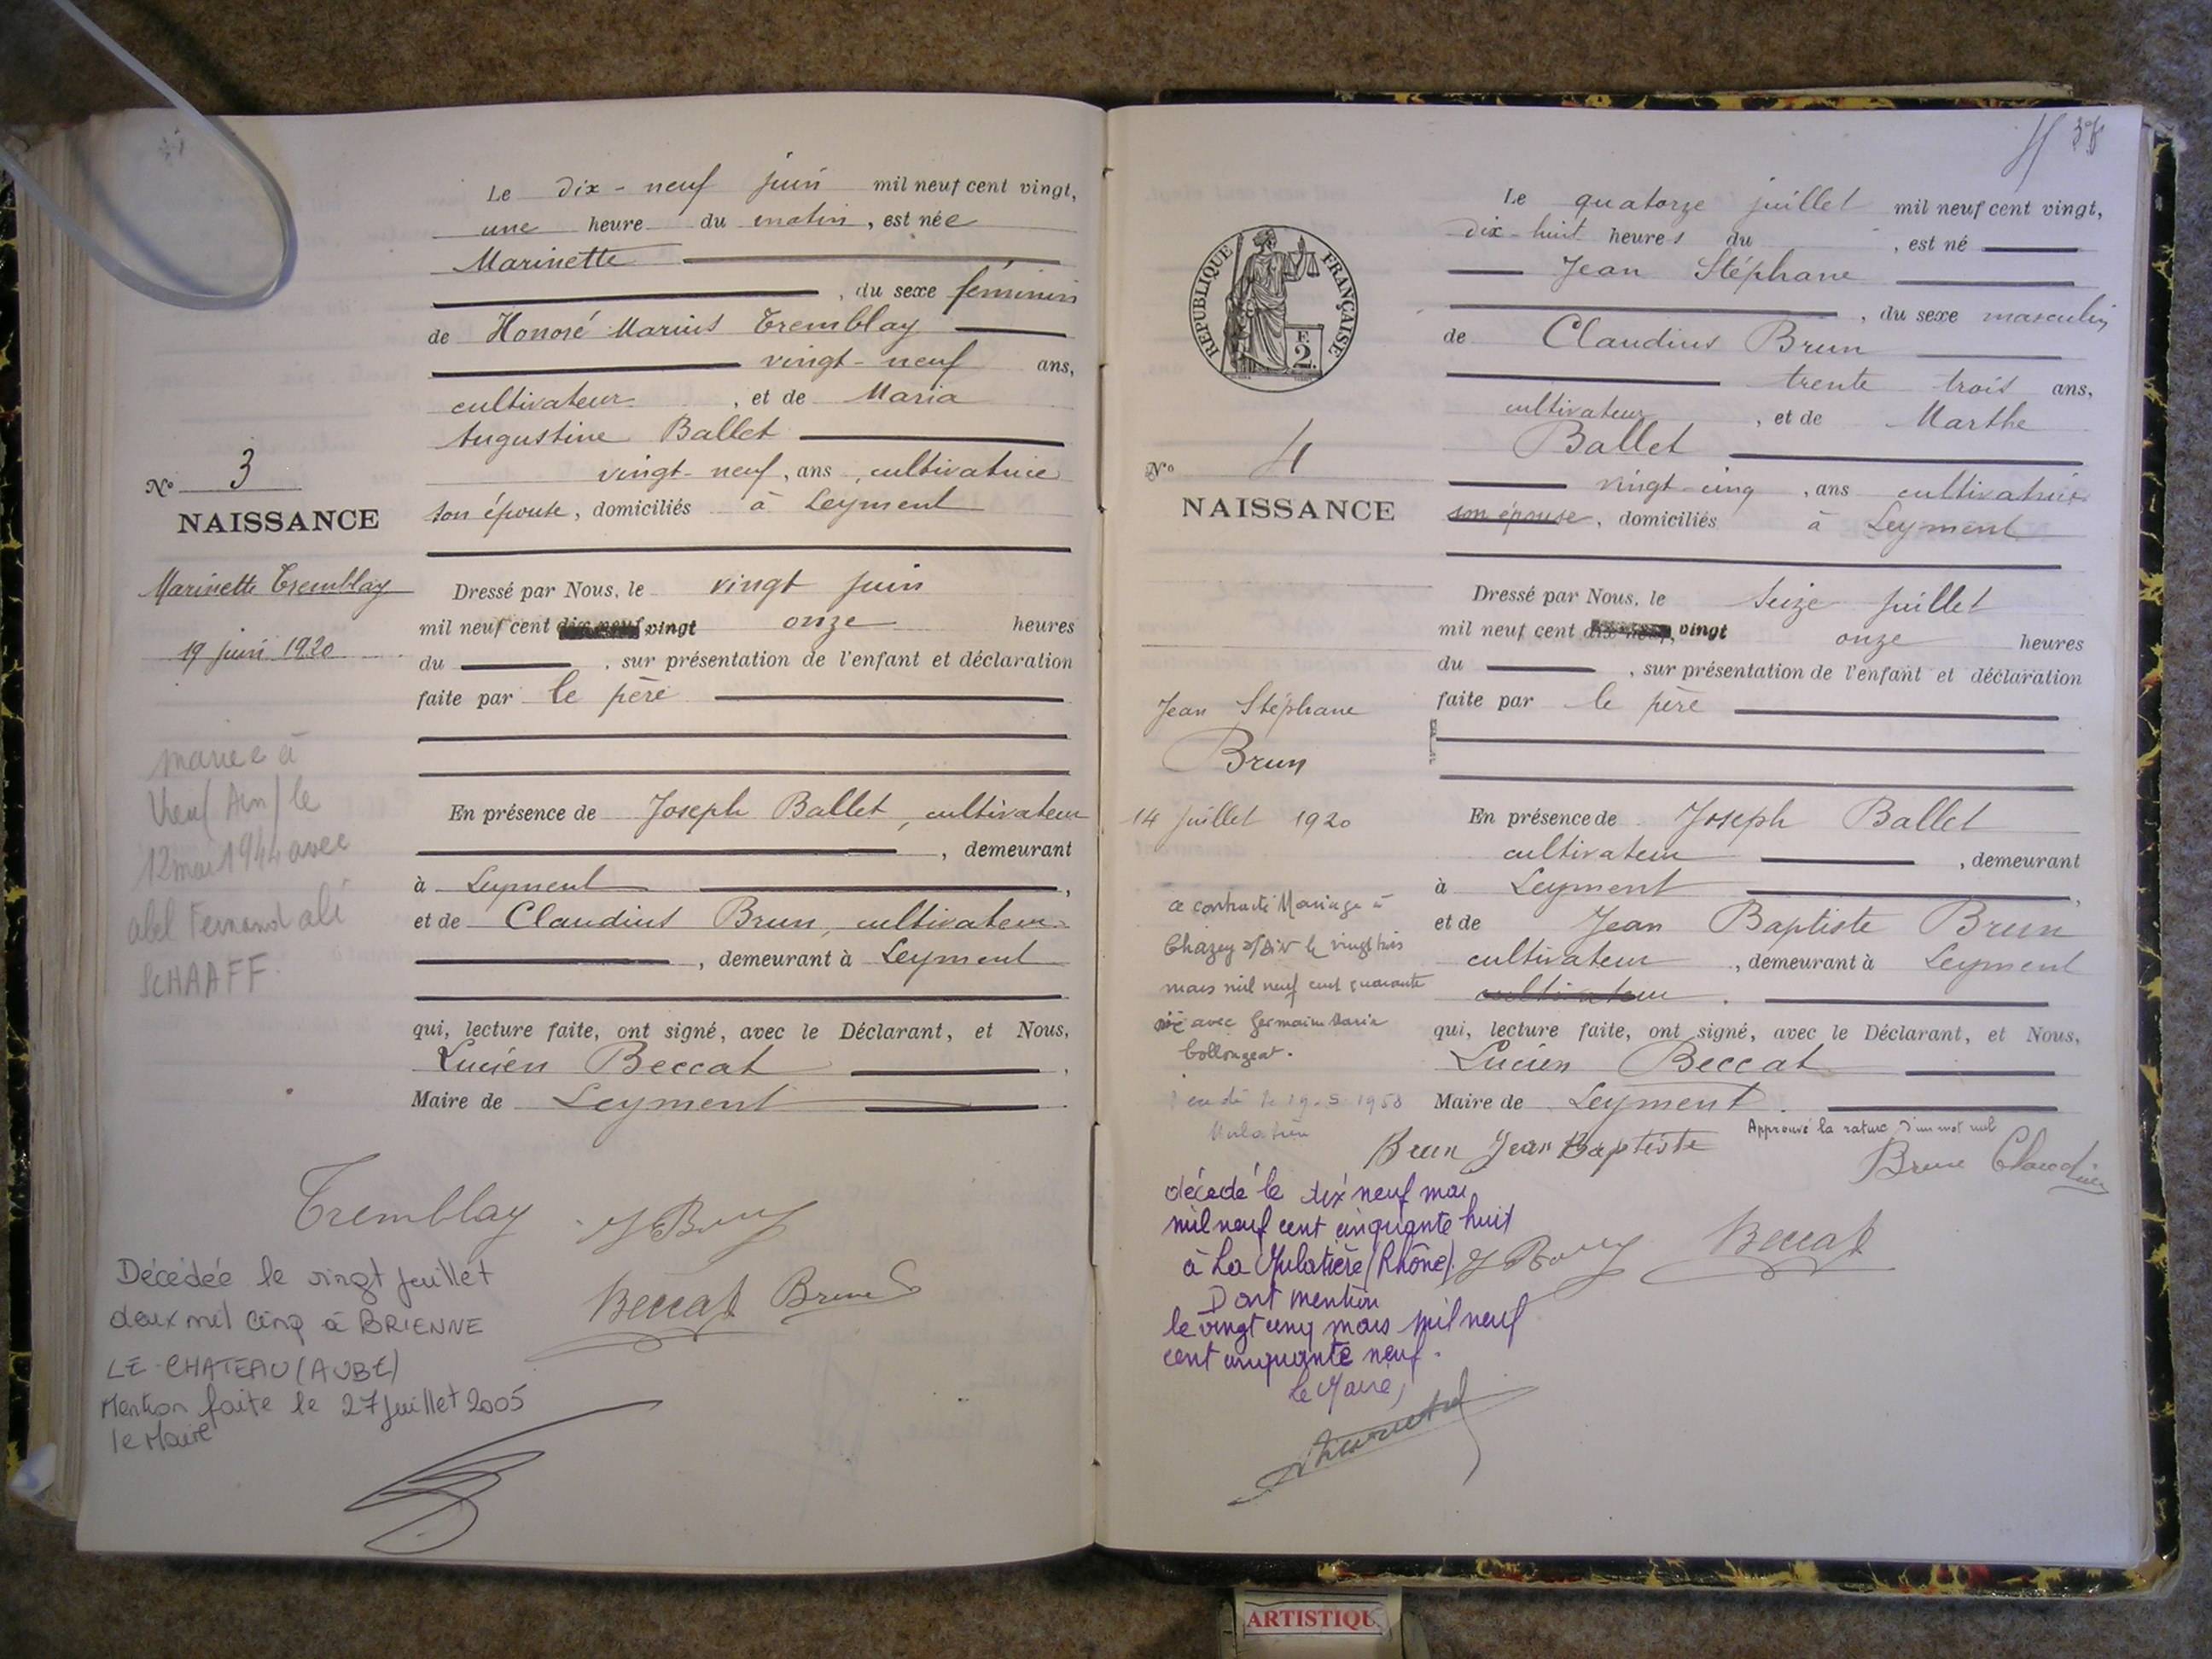 Le dix-neuf juin mil neuf cent vingt,
une heure du matin, est née
Marinette
, du sexe féminin
de Honoré Marius Tremblay
vingt-neuf ans,
cultivateur, et de Maria
Augustine Ballet
vingt-neuf, ans, cultivatrice
son épouse, domiciliés à Leyment
N° 3
NAISSANCE
Marinette Tremblay
19 juin 1920
Dressé par Nous, le vingt juin
mil neuf cent dix-neuf vingt onze heures
du , sur présentation de l'enfant et déclaration
faite par le père
mariée à
(Ain) le
12 mai 1944 avec
abel Fernand ali
SCHAAFF.
En présence de Joseph Ballet, cultivateur
, demeurant
à Leyment ,
et de Claudius Brun, cultivateur
, demeurant à Leyment
qui, lecture faite, ont signé, avec le Déclarant, et Nous,
Lucien Beccat ,
Maire de Leyment
Tremblay
Beccat Brun
Décédée le vingt juillet
deux mil cinq à BRIENNE
LE-CHATEAU (AUBE)
Mention faite le 27 juillet 2005
le Maire
Le quatorze juillet mil neuf cent vingt,
dix-huit heures du , est né
Jean Stéphane
, du sexe masculin
de Claudius Brun
trente trois ans,
cultivateur, et de Marthe
Ballet
vingt-cinq, ans cultivatrice
son épouse, domiciliés à Leyment
REPUBLIQUE FRANÇAISE
F.
2.
N° 4
NAISSANCE
Dressé par Nous, le seize juillet
mil neuf cent dix-neuf, vingt onze heures
du , sur présentation de l'enfant et déclaration
faite par le père
Jean Stéphane
Brun
14 juillet 1920
a contracté Mariage à
Chazey s/Ain le vingt trois
mars mil neuf cent quarante
avec Germaine Maria
Collongeat.
le 19-5-1958
Mulatière
En présence de Joseph Ballet
cultivateur , demeurant
à Leyment ,
et de Jean Baptiste Brun
cultivateur, demeurant à Leyment
cultivateur.
qui, lecture faite, ont signé, avec le Déclarant, et Nous,
Lucien Beccat
Maire de Leyment.
Approuvé la rature d'un mot nul
Brun Jean Baptiste
Brun Claudius
Beccat
décédé le dix neuf mai
mil neuf cent cinquante huit
à La Mulatière (Rhône).
Dont mention
le vingt cinq mars mil neuf
cent cinquante neuf.
Le Maire,
ARTISTIQU